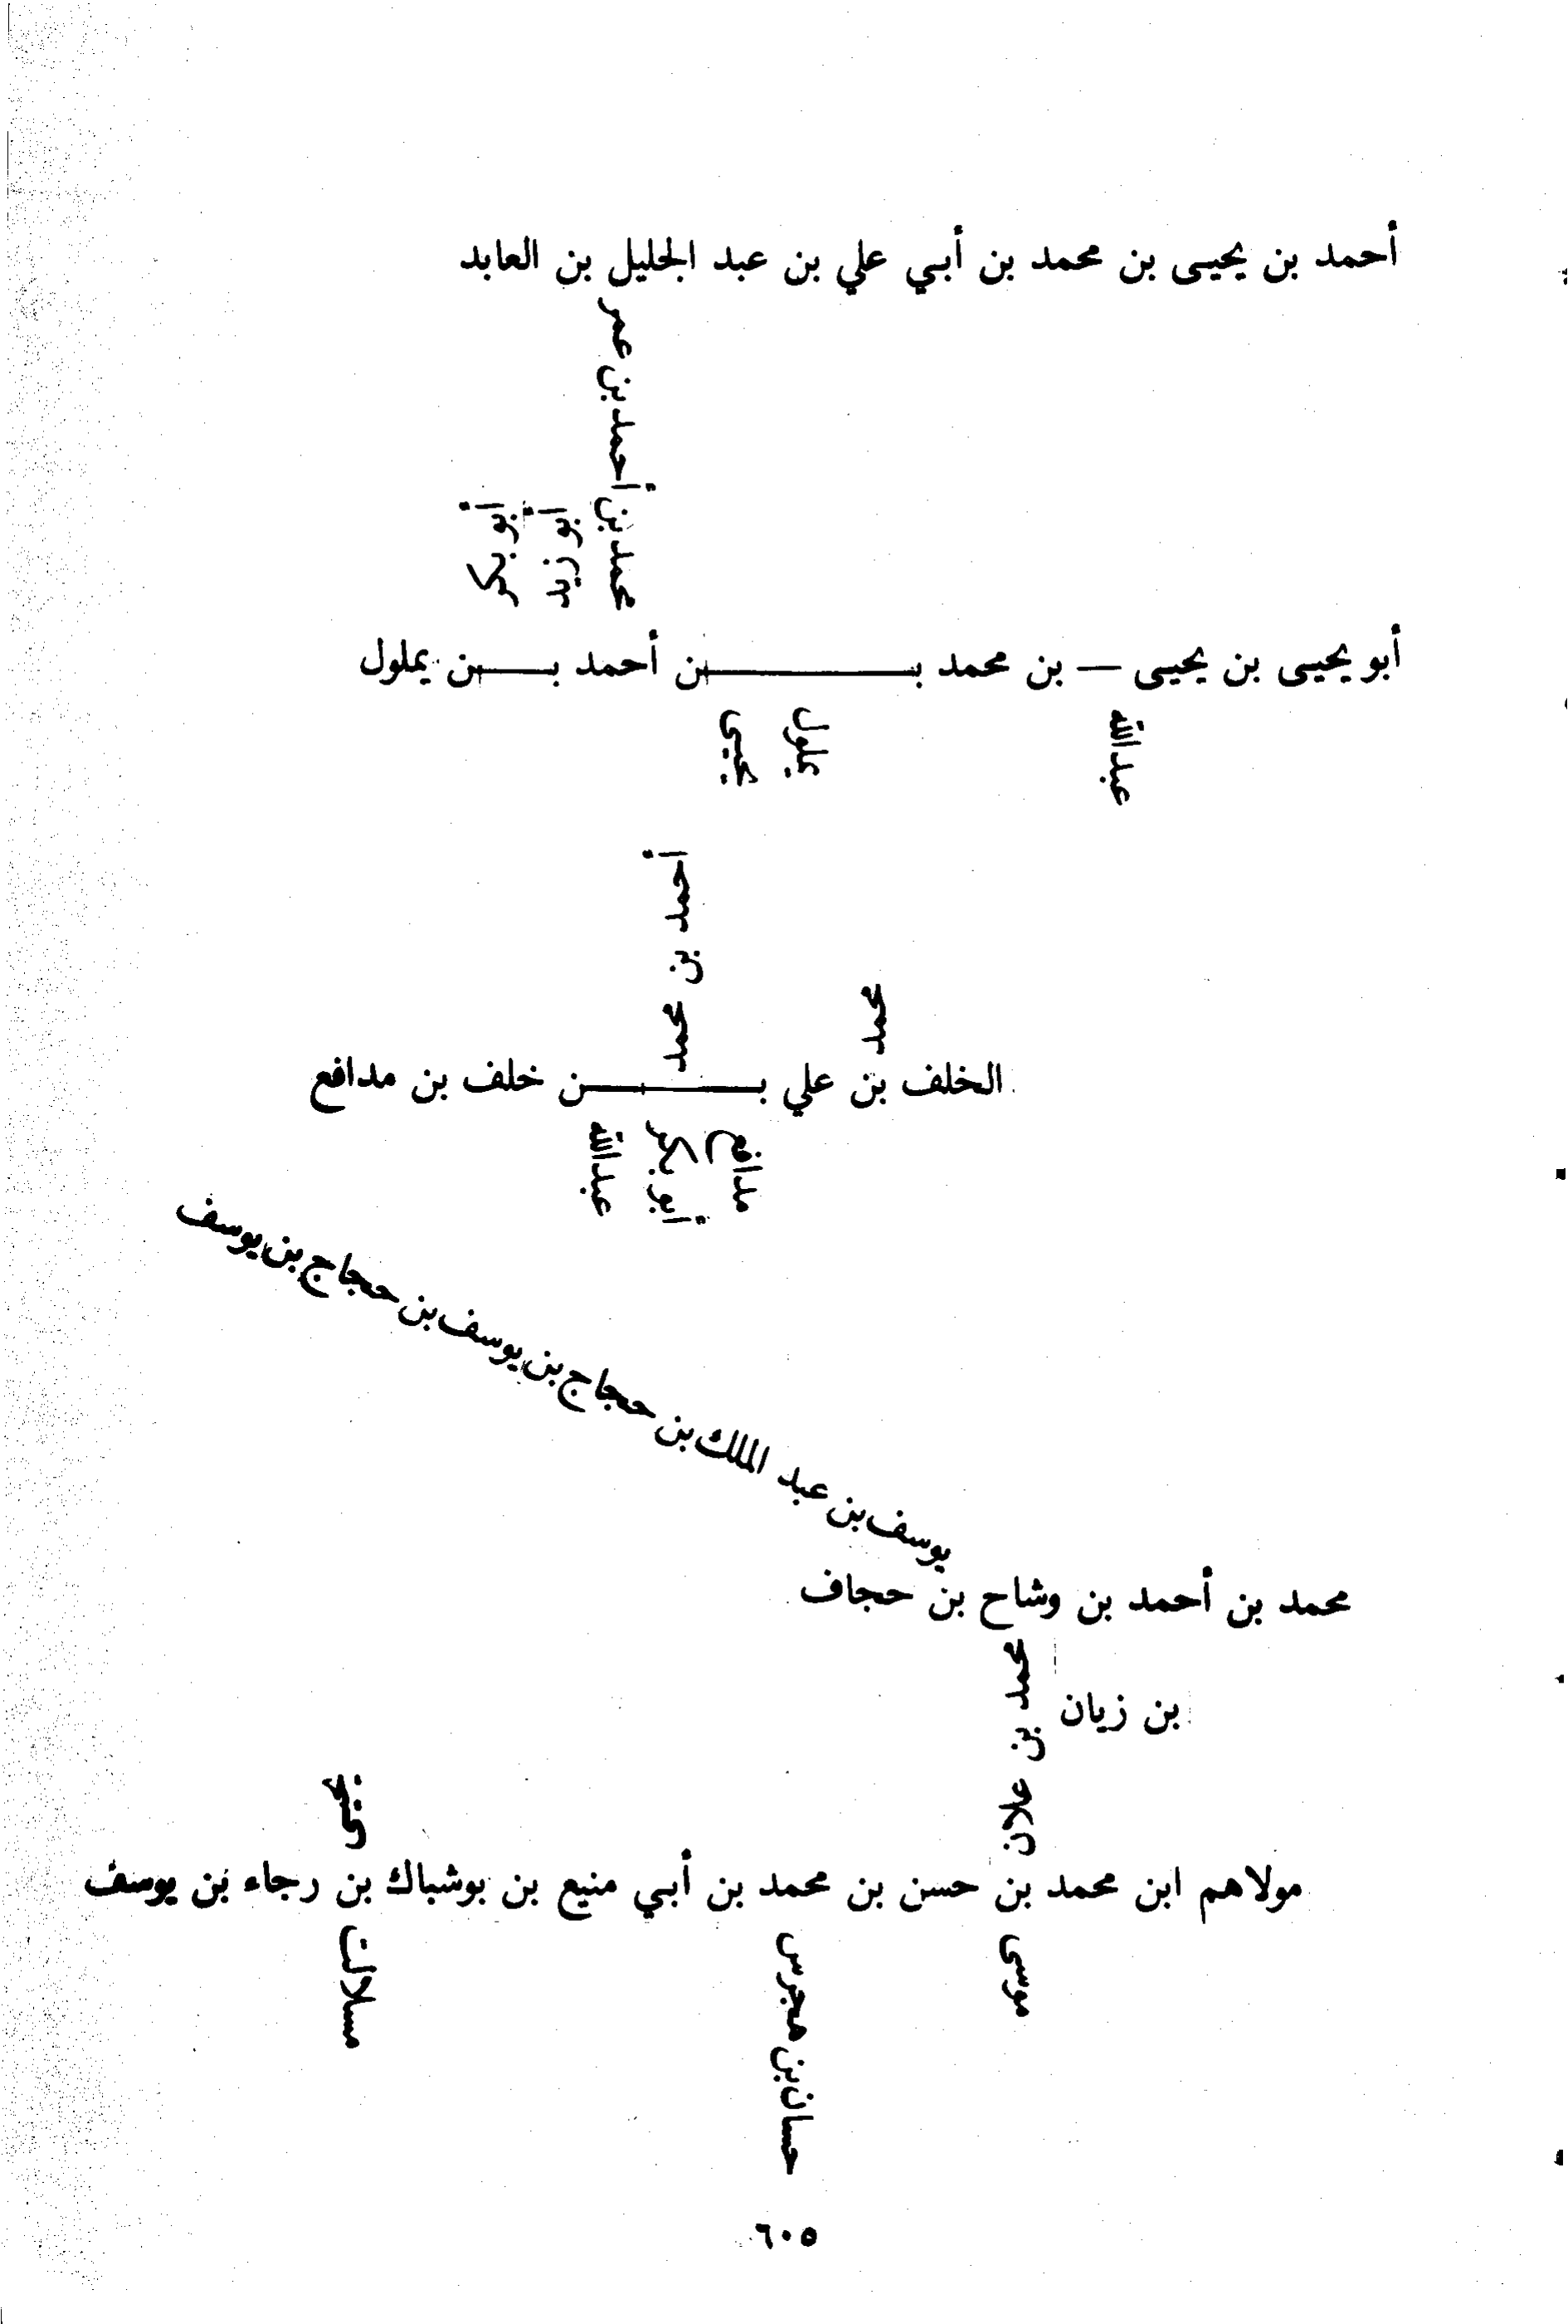 أحمد بن يحيى بن محمد بن أبي علي بن عبد الجليل بن العابد
محمد بن أحمد بن عمر
أبو بكر
أبو يحيى بن يحيى — بن محمد بن أحمد بن يملول
عبدالله
يملول
يحيى
أحمد بن محمد
محمد
الخلف بن علي بن خلف بن مدافع
مدافع
أبو بكر
عبدالله
يوسف بن عبد الملك بن حجاج بن يوسف بن حجاج بن يوسف
محمد بن أحمد بن وشاح بن حجاف
بن زيان
محمد بن علان
مولاهم ابن محمد بن حسن بن محمد بن أبي منيع بن بوشباك بن رجاء بن يوسف
موسى
حسان بن هجرس
مسلات
٦٠٥